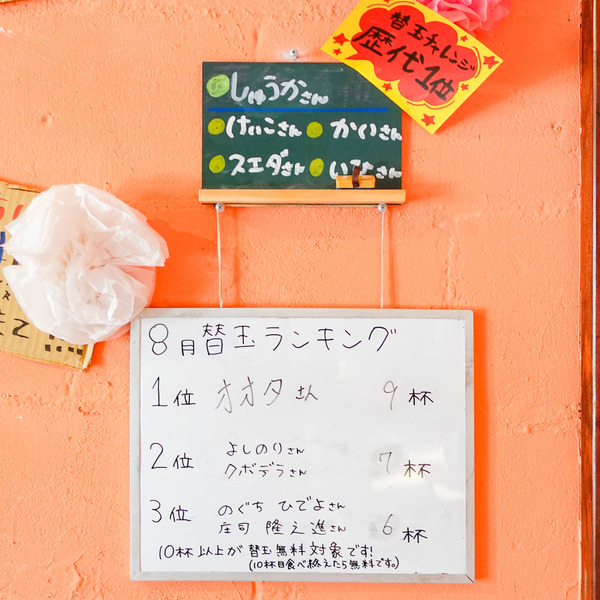 替玉チャレンジ
歴代1位
しゅうかさん
けいこさん かいさん
スエダさん
8月替玉ランキング
1位 オオタさん 9杯
よしのりさん
2位 クボデラさん 7杯
のぐち ひでよさん
3位 庄司 隆之進さん 6杯
10杯以上が替玉無料対象です!
(10杯目食べ終えたら無料です。)